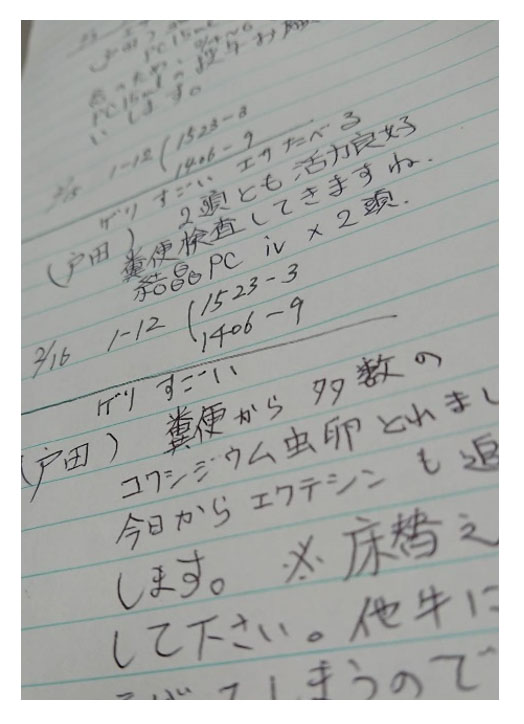 PC 15ml
います。
2/15 1-12 (1523-3
1406-9
ゲリ すごい エサたべる
(戸田) 2頭とも活力良好
糞便検査してきますね.
結晶PC iv × 2頭.
2/16 1-12 (1523-3
1406-9
ゲリ すごい
(戸田) 糞便から多数の
コクシジウム虫卵とれまし
今日から エクテシン も追
します。 ※床替え
して下さい。他牛に
てしまうので